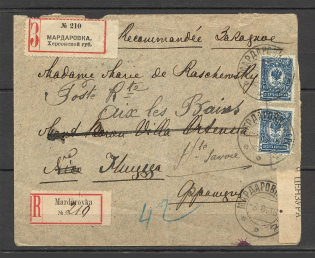 № 210
МАРДАРОВКА,
Херсонской губ.
З
Recommandée Заказное
Madame Marie de Raschewsky
Poste Rte
Aix les Bains
Hte Savoie
Nice Ницца
Франция
R
Mardarovka
№ 210
42
МАРДАРОВКА